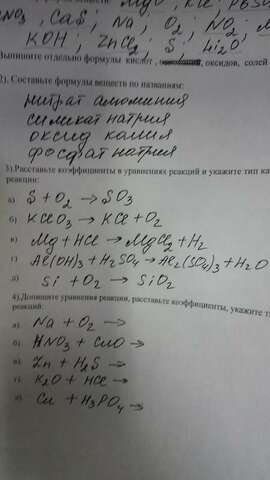 NO₃, CaS, Na, O₂, NO₂,
KOH, ZnCl₂, S, Li₂O
Выпишите отдельно формулы кислот, оксидов, солей
2). Составьте формулы веществ по названиям:
нитрат алюминия
силикат натрия
оксид калия
фосфат натрия
3).Расставьте коэффициенты в уравнениях реакций и укажите тип ка
реакции:
а) S + O₂ → SO₃
б) KClO₃ → KCl + O₂
в) Mg + HCl → MgCl₂ + H₂
г) Al(OH)₃ + H₂SO₄ → Al₂(SO₄)₃ + H₂O
д) Si + O₂ → SiO₂
4).Допишите уравнения реакции, расставьте коэффициенты, укажите т
реакций:
а) Na + O₂ →
б) HNO₃ + CuO →
в) Zn + H₂S →
г) K₂O + HCl →
д) Ca + H₃PO₄ →